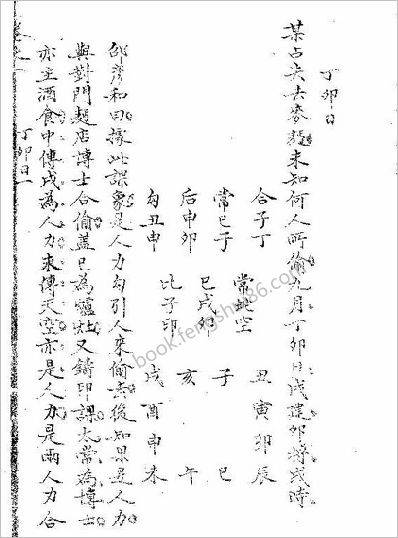 丁卯日
某占失去麥麵未知何人所偷九月丁卯日戌建卯将戌時
合子丁
常巳子
后申卯
勾丑申
常 空
巳戌卯
子印
丑寅卯辰
子 巳
亥 午
戌酉申未
邵彥和曰據此課象是人力勾引人來偷去後知果是人力
與對門麵店博士合偷盖巳為爐灶又鑄印課太常為博士
亦主酒食中傳戌為人力末傳天空亦是人力是兩人力合
丁卯日
book.fengshui86.com